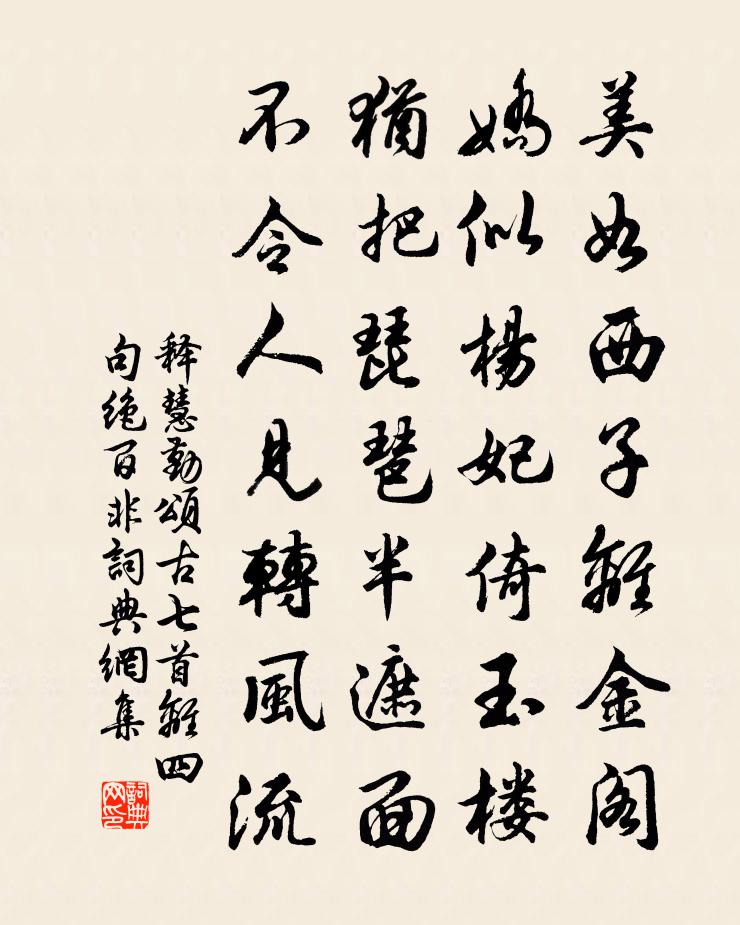 美如西子離金阁
嬌似楊妃倚玉楼
猶把琵琶半遮面
不令人見轉風流
释慧勤頌古七首離四
句绝百非詞典網集
詞典网印